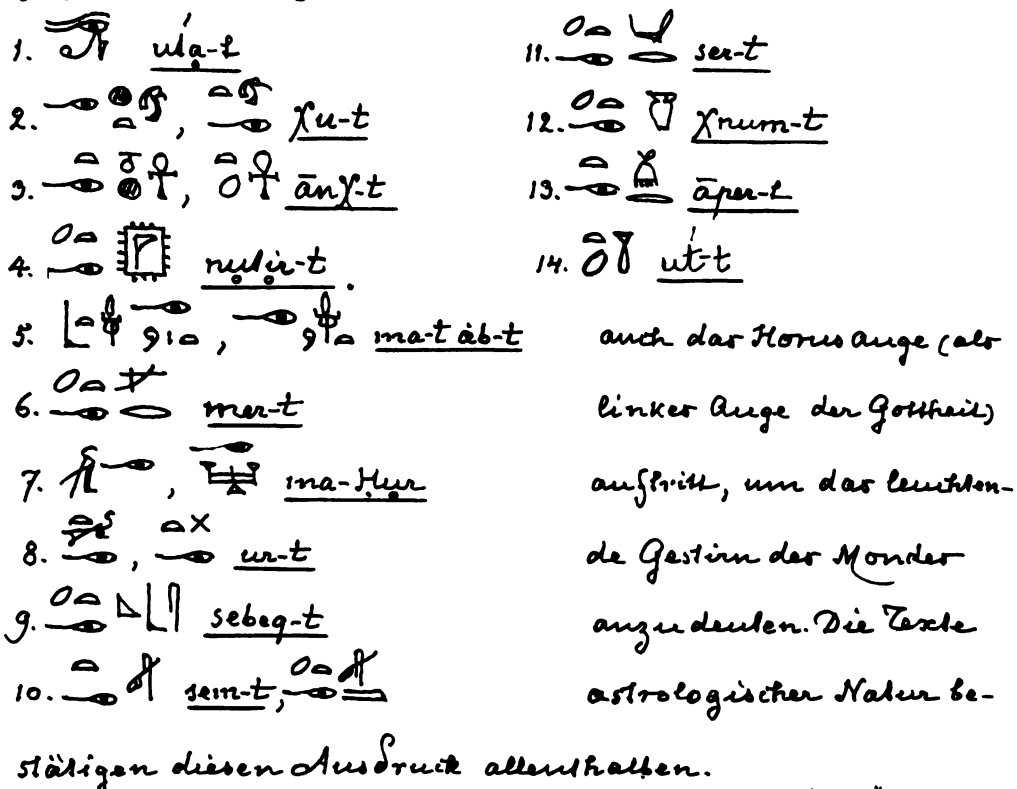 1. út̓ạ-t
2. , χu-t
3. , ānχ-t
4. nụtịr-t.
5. , ma-t áb-t
6. mer-t
7. , ma-Ḥụr
8. , ur-t
9. sebeq-t
10. sem-t,
11. ser-t
12. χnum-t
13. āper-t
14. ut́-t
auch das Horusauge (als
linkes Auge der Gottheit)
auftritt, um das leuchten-
de Gestirn des Mondes
anzudeuten. Die Texte
astrologischer Natur be-
stätigen diesen Ausdruck allenthalben.